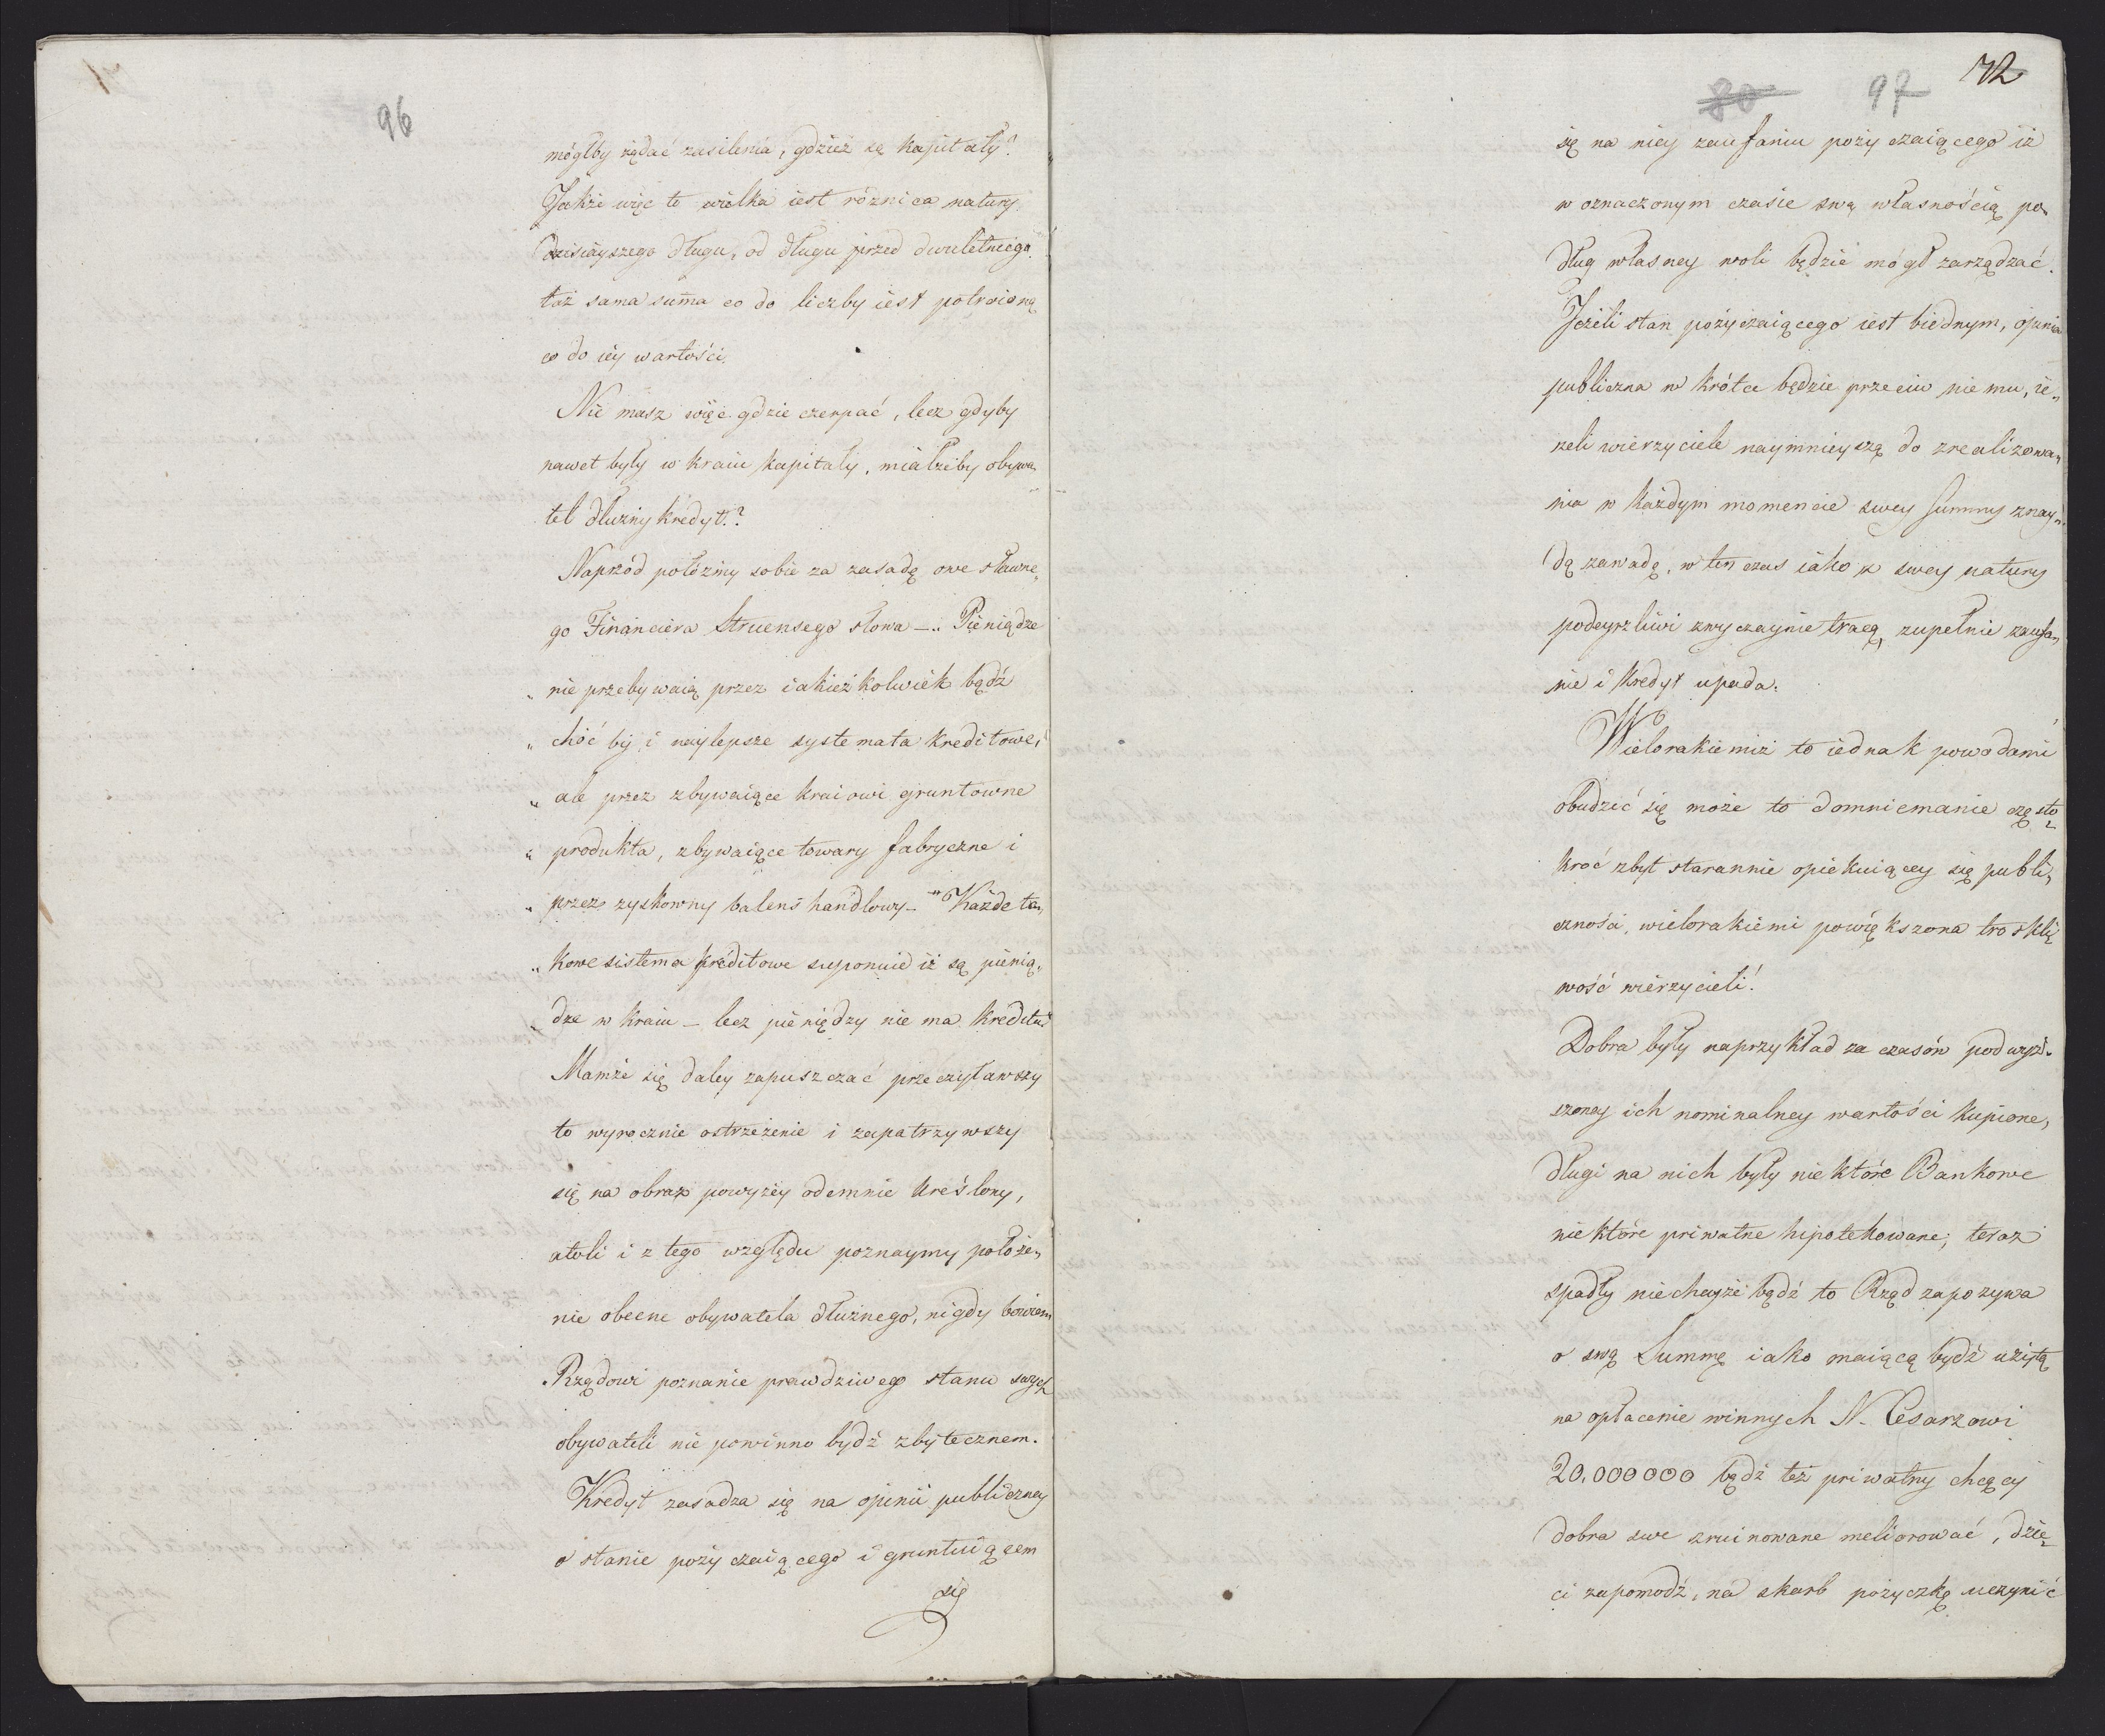 96
mógłby żądać zasilenia, gdzież są kapitały?
Jakże więc to wielka iest różnica natury
dzisieyszego długu, od długu przed dwuletniego.
taż sama suma co do liczby iest potroioną
co do iéy wartości.
Nie masz więc gdzie czerpać, lecz gdyby
nawet były w kraiu kapitały, miałżeby obywa„
tel dłużny kredyt.?
Naprzód położmy sobie za zasadę owe sławne„
go Financiera Struensego słowa —„ Pieniądze
„ nie przebywaią przez iakieżkolwiek bądź
„ choć by i naylepsze systemata kreditowe,
„ ale przez zbywaiące kraiowi gruntowne
„ produkta, zbywaiące towary fabryczne i
„ przez zyskowny balens handlowy —" Każde ta„
„ kowe sistema kréditowe suponuie iż są pienią„
„ dze w kraiu — lecz pieniędzy nie ma kreditu"
Mamże się daley zapuszczać przeczytawszy
to wyrocznie ostrzeżenie i zapatrzywszy
się na obraz powyżéy odemnie kreślony,
atoli i z tego względu poznaymy położe„
nie obecne obywatela dłużnego, nigdy bowiem
Rządowi poznanie prawdziwego stanu swych
obywateli nie powinno bydź zbytecznem.
Kredyt zasadza się na opinii publiczney
o stanie pożyczaiącego i gruntuiącem
się
80 97 72
się na niey zaufaniu pożyczaiącego iż
w oznaczonym czasie swą własnością po
dług własney woli będzie mógł zarządzać.
Jeżeli stan pożyczaiącego iest biednym, opinia
publiczna w krótce będzie przeciw niemu, ie„
żeli wierzyciele naymnieyszą do zrealizowa„
nia w każdym momencie swey summy znay„
dą zawadę, w ten czas iako z swey natury
podeyrzliwi zwyczaynie tracą zupełnie zaufa„
nie i kredyt upada.
Wielorakiemiż to iednak powodami
obudzić się może to domniemanie często
kroć zbyt starannie opiekuiącey się publi„
czności, wielorakiemi powiększona troskli
wość wierzycieli!
Dobra były naprzykład za czasów podwyż„
szoney ich nominalney wartości kupione,
długi na nich były niektóre Bankowe
niektóre priwatne hipotekowane; teraz
spadły niechayże bądź to Rząd zapozywa
o swą Summę iako maiącą bydź użytą
na opłacenie winnych N. Cesarzowi
20,000000 bądź też priwatny chcący
dobra swe zruinowane meliorować, dzie
ci zapomodź, na skarb pożyczkę uczynić